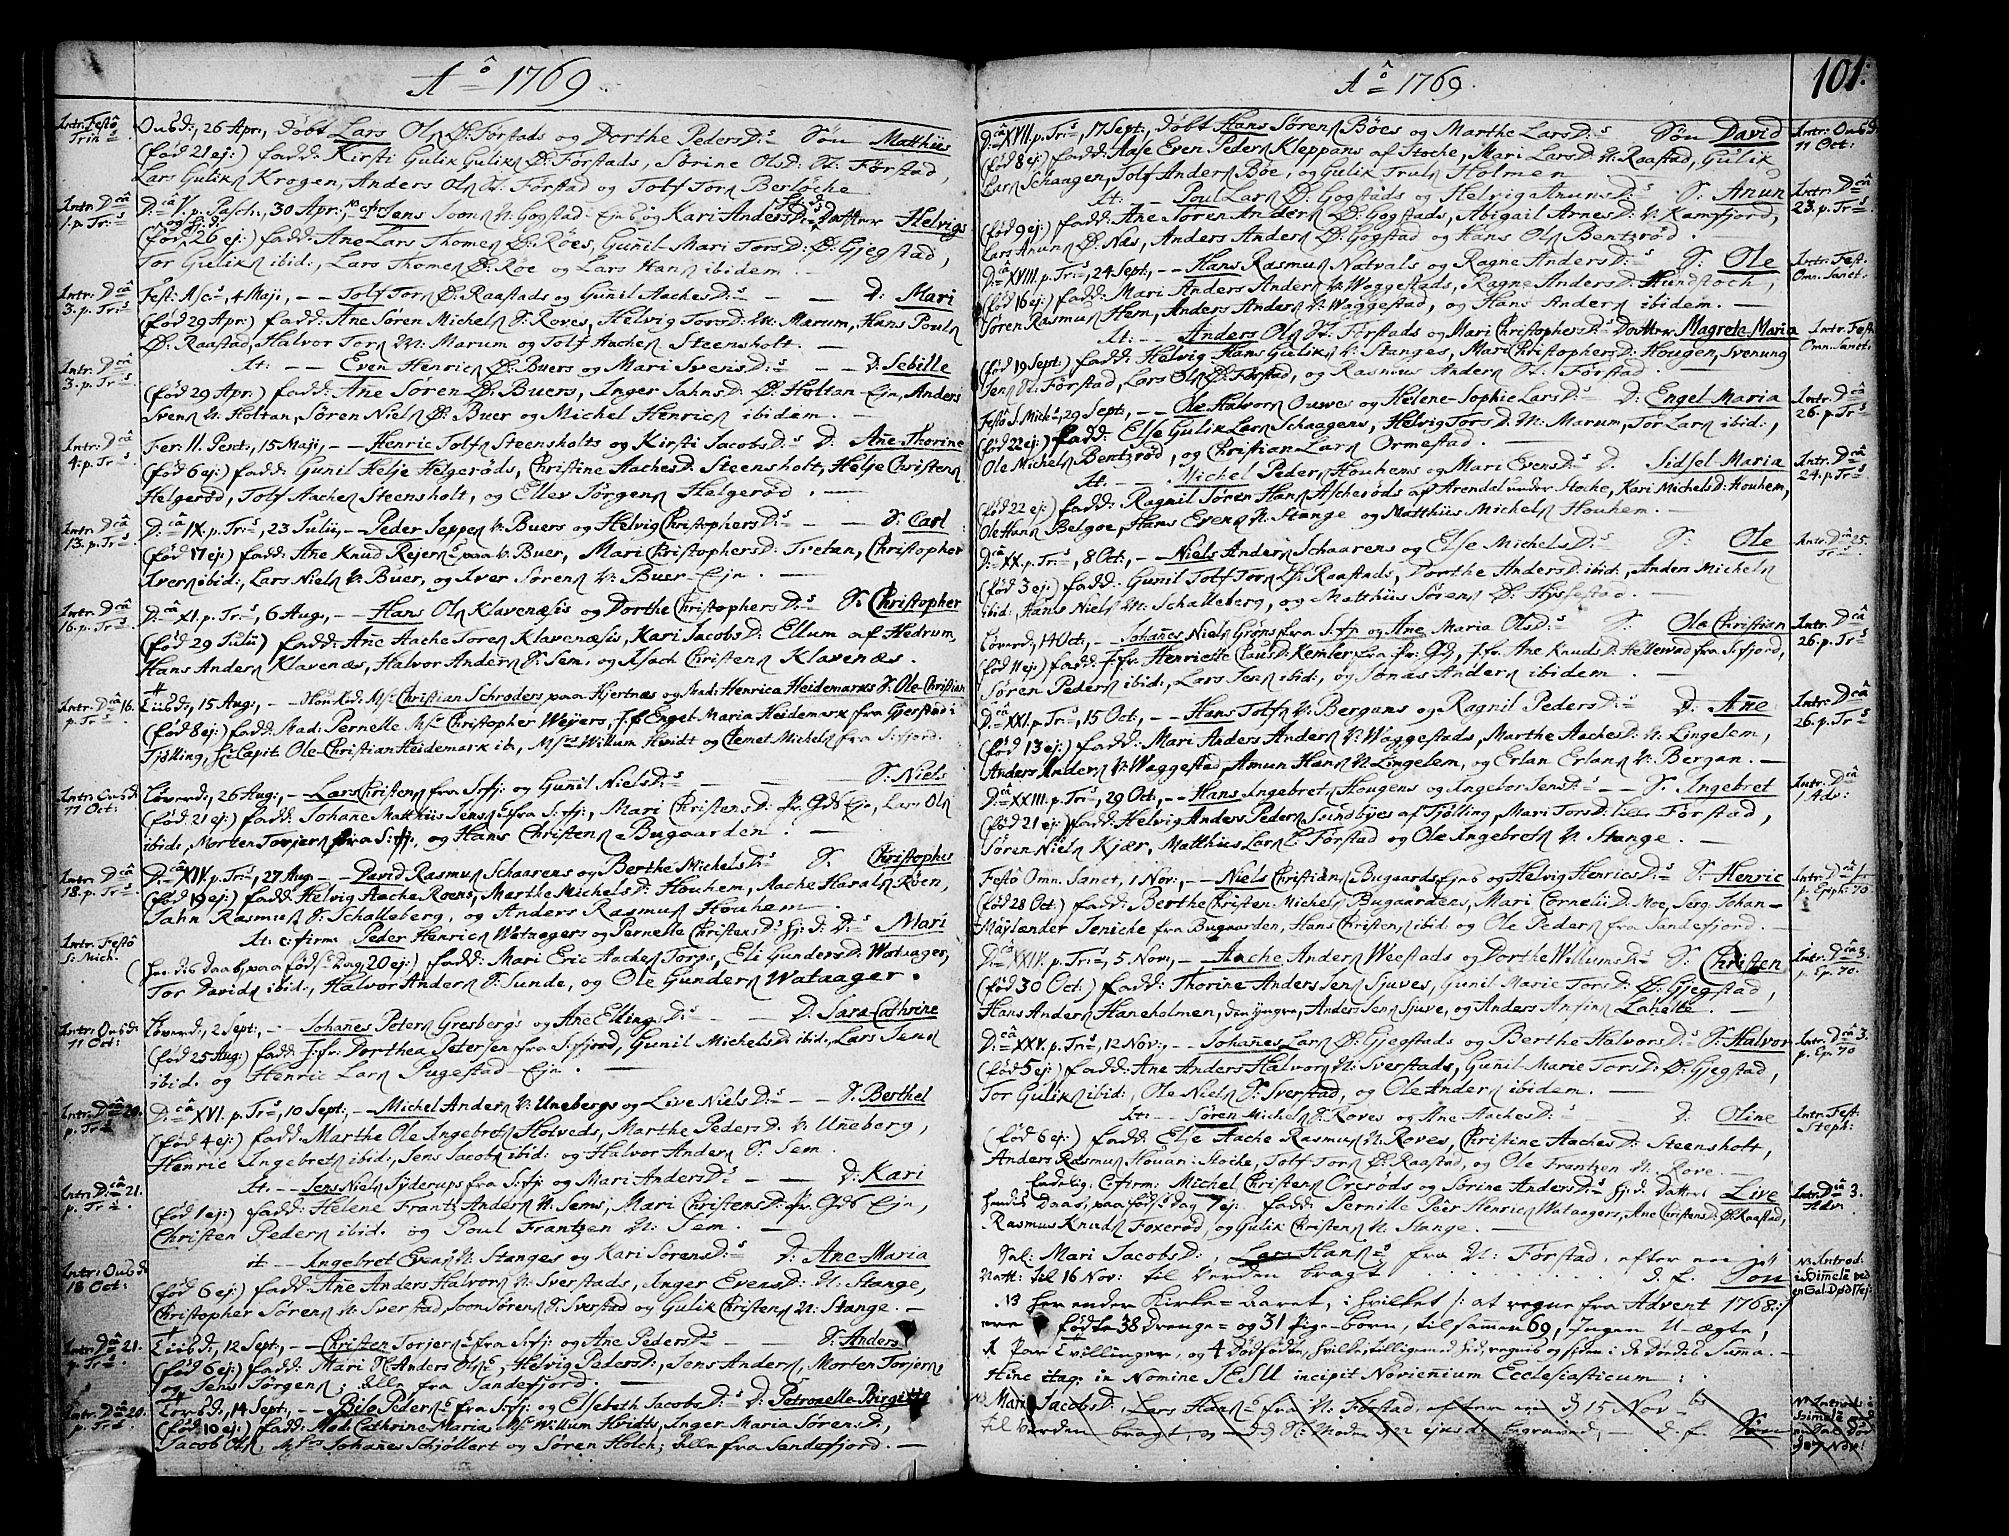 Aô 1769
Intr: Festô
Trin:s
Onsd:, 26 Apr:, døbt Lars Ols Ø: Førstads og Dorthe PedersD:s Søn Matthiis
(fød 21 ej:) fadd: Kirsti Gulik Guliks Ø: Førstads, Sørine OlsD: N: Førstad,
Lars Guliks Krogen, Anders Ols N: Førstad og Tolf Tors Berløche
Intr: D:câ
1. p: Tr:s
D:câ V. p: Pasch:, 30 Apr:, Jens Joons N: Gogstad Ejn: og Kari AndersD:s Datter Helvig
(fød 26 ej:) fadd: Ane Lars Thomes Ø: Røes, Gunil Mari TorsD: Ø: Gjegstad,
Tor Guliks ibid:, Lars Thomes Ø: Røe og Lars Hans ibidem. —
Intr: D:câ
3. p: Tri:s
Fest: Asc:s, 4 Maji, – – Tolf Tors Ø: Raastads og Gunil AachesD:s — — D: Mari
(fød 29 Apr:) fadd: Ane Søren Michels S: Roves, Helvig TorsD: N: Marum, Hans Pouls
Ø: Raastad, Halvor Tors N: Marum og Tolf Aaches Steensholt. —
Intr: D:câ
3. p: Tr:s
It: – – Even Henrics Ø: Buers og Mari SvensD:s — — D: Sebille
(fød 29 Apr:) fadd: Ane Søren Ø: Buers, Inger JahnsD: Ø: Holtan Ejn, Anders
Svens N: Holtan, Søren Niels Ø: Buer og Michel Henrics ibidem. —
Intr: D:câ
4. p: Tr:s
Fer: II. Pent:, 15 Maji, – – Henric Tolfs Steensholts og Kirsti JacobsD:s D: Ane-Thorine
(fød 6 ej:) fadd: Gunil Helje Helgerøds, Christine AachesD: Steensholt, Helje Christens
Helgerød, Tolf Aaches Steensholt, og Ellev Jørgens Helgerød. —
Intr: D:câ
13. p: Tr:s
D:câ IX. p: Tr:s, 23 Julii, – Peder Jeppes V: Buers og Helvig ChristophersD:s — — S: Carl
(fød 17 ej:) fadd: Ane Knud Rejers paa V: Buer, Mari ChristophersD: Tvetan, Christopher
Ivers ibid:, Lars Niels V: Buer, og Iver Sørens V: Buer-Ejn. —
Intr: D:câ
16. p: Tr:s
D:câ XI. p: Tr:s, 6 Aug:, – Hans Ols Klavenæsis og Dorthe ChristophersD:s S: Christopher
(fød 29 Julii) fadd: Ane Aache Tores Klavenæsis, Kari JacobsD: Ellum af Hedrum,
Hans Anders Klavenæs, Halvor Anders S: Sem, og Isach Christens Klavenæs.
Intr: D:câ 16.
p: Tr:s
Tiisd:, 15 Aug:, – Hans Kod: Mr Christian Schrøders paa Hjertnes og Mad: Henrica Heidemarks S: Ole-Christian
(fød 8 ej:) fadd: Mad: Pernelle Mr Christopher Weyers, J.fr Engel Maria Heidemark fra Gjerstad i
Tjølling, Hr Capit: Ole-Christian Heidemark ib:, Mr Willum Hvidt og Clemet Michels fra S:fjord.
Intr: Onsd:
11 Oct:
Løverd:, 26 Aug:, – Lars Christens fra S:fj: og Gunil NielsD:s — — S: Niels
(fød 21 ej:) fadd: Johane Matthiis Jens fra S:fj:, Mari ChristensD: Pr: Gds Ejn, Lars Ols
ibid:, Morten Torjers fra S:fj:, og Hans Christens Bugaarden. —
Intr: D:câ
18. p: Tr:s
D:câ XIV. p: Tr:s, 27 Aug: – David Rasmus Schaarens og Berthe MichelsD:s S: Christopher
(fød 19 ej:) fadd: Helvig Aache Roens, Merthe MichelsD: Houhem, Aache Harals Røen,
Jahn Rasmus S: Schalleberg, og Anders Rasmus Houhem.
Intr: Festô
S: Mich:
It: cofirm: Peder Henrics Wataagers og Pernelle ChristensD:s Hj: D: D:s Mari
(hendes daab, paa føds: Dag, 20 ej:) fadd: Mari Eric Aaches Torps, Eli GundersD: Wataager,
Tor Davids ibid:, Halvor Anders S: Sunde, og Ole Gunders Wataager.
Intr: Onsd:
11 Oct:
Løverd:, 2 Sept:, – Johañes Peters Gresberg's og Ane EllingsD:s — D: Sara-Cathrine
(fød 25 Aug:) fadd: J.fr: Dorthea Petersen fra S:fjord, Gunil MichelsD: ibid:, Lars Juns
ibid: og Henric Lars Pugestad-Ejn. —
Intr: D:câ 20.
p: Tr:s
D:câ XVI. p: Tr:s, 10 Sept:, – Michel Anders V: Unebergs og Live NielsD:s — S: Berthel
(fød 4 ej:) fadd: Marthe Ole Ingebrets Hotveds, Marthe PedersD: V: Uñeberg,
Henric Ingebrets ibid:, Jens Jacobs ibid: og Halvor Anders S: Sem.
Intr: D:câ 21.
p: Tr:s
It: – Jens Niels Syderups fra S:fj: og Mari AndersD:s — D: Kari
(fød 1 ej:) fadd: Helene Frantz Anders N: Sems, Mari ChristensD: Pr: Gds Ejn,
Christen Peders ibid: og Poul Frantzen N: Sem. —
Intr: Onsd:
18 Oct:
it – Ingebret Evens N: Stanges og Kari SørensD:s — D: Ane-Maria
(fød 6 ej:) fadd: Ane Anders Halvors N: Sverstads, Inger EvensD: N: Stange,
Christopher Sørens N: Sverstad, Joon Sørens S: Sverstad og Gulik Christens N: Stange. —
Intr: D:câ 21.
p: Tr:s
Tiisd:, 12 Sept:, – Christen Torjers fra S:fj: og Ane PedersD:s — S: Anders
(fød 6 ej:) fadd: Mari Anders Ols, Helvig PedersD:, Jens Anders, Morten Torjers
og Jens Jørgens; alle fra Sandefjord. —
Intr: D:câ 20.
p: Tr:s
Torsd:, 14 Sept:, – Bilo Peders fra S:fj: og Elsebeth JacobsD:s D: Petronelle-Birgitte
(fød 10 ej:) fadd: Mad: Cathrine Maria Mr Willum Hvidts, Inger Maria SørensD:,
Jacob Ols, Johañes Schjøllert og Søren Holch; alle fra Sandefjord. —
Aô 1769.
101:
D:câ XVII. p: Tr:s, 17 Sept:, døbt Hans Sørens Bøes og Marthe LarsD:s Søn David
Intr: Onsd:
11 Oct:
(fød 8 ej:) fadd: Aase Even Peders Kleppans af Stoche, Mari LarsD: N: Raastad, Gulik
Lars Schaagen, Tolf Anders Bøe, og Gulik Truls Holmen
It: – – Poul Lars Ø: Gogstads og Helvig AnunsD:s S: Anun
Intr: D:câ
23. p: Tr:s
(fød 9 ej:) fadd: Ane Søren Anders Ø: Gogstads, Abigail ArnesD: V: Kamfjord,
Lars Anuns Ø: Næs, Anders Anders Ø: Gogstad og Hans Ols Bentzrød. —
D:câ XVIII. p: Tr:s, 24 Sept:, – – Hans Rasmus Natvals og Ragne AndersD:s S: Ole
Intr: Fest:
Omn: Sanct:
(fød 16 ej:) fadd: Mari Anders Anders V: Woggestads, Ragne AndersD: Hundstoch,
Søren Rasmus Hem, Anders Anders V: Woggestad, og Hans Anders ibidem. —
It: – Anders Ols N: Førstads og Mari ChristophersD:s Datter Magrete-Maria
Intr: Fest:
Omn: Sanct:
(fød 19 Sept:) fadd: Helvig Hans Guliks V: Stanges, Mari ChristophersD: Hougen, Svenung
Jens N: Førstad, Lars Ols Ø: Førstad, og Rasmus Anders N: Førstad. —
Festô S: Mich:s, 29 Sept:, – – Ole Halvors Ousves og Helene-Sophie LarsD:s D: Engel-Maria
Intr: D:câ
26. p: Tr:s
(fød 22 ej:) fadd: Else Gulik Lars Schaagens, Helvig TorsD: N: Marum, Tor Lars ibid:,
Ole Michels Bentzrød, og Christian Lars Ormestad. —
It: – Michel Peders Houhems og Mari EvensD:s D. Sidsel-Maria
Intr: D:câ
24. p: Tr:s
(fød 22 ej:) fadd: Ragnil Søren Hans Ascherøds af Arendal under Stoche, Kari MichelsD: Houhem,
Ole Hans Belgoe, Hans Evens N: Stange og Matthiis Michels Houhem. —
D:câ XX. p: Tr:s, 8 Oct:, – Niels Anders Schaarens og Else MichelsD:s S: Ole
Intr: D:câ 25.
Tr:s
(fød 3 ej:) fadd: Gunil Tolf Tors Ø: Raastads, Dorthe AndersD: ibid:, Anders Michels
ibid:, Hans Niels N: Schalleberg, og Matthiis Sørens Ø: Hyssestad. —
Løverd:, 14 Oct:, – Johañes Niels Grøns fra S:fj: og Ane Maria OlsD:s S: Ole Christian
Intr: D:câ
26. p: Tr:s
(fød 11 ej:) fadd: J.fr: Henriette ClausD: Kemler fra Pr: Gds, J.fr: Ane KnudsD: Hellevad fra S:fjord,
Søren Peders ibid:, Lars Jens ibid:, og Jonas Anders ibidem. —
D:câ XXI. p: Tr:s, 15 Oct:, – – Hans Tolfs V: Bergans og Ragnil PedersD:s D: Añe
Intr: D:câ
26. p: Tr:s
(fød 13 ej:) fadd: Mari Anders Anders V: Waggestads, Marthe AachesD: N: Lingelem,
Anders Anders V: Waggestad, Amun Hans N: Lingelem, og Erlan Erlans V: Bergan. —
D:câ XXIII. p: Tr:s, 29 Oct:, – – Hans Ingebrets Hougens og Ingebor JensD:s — S: Ingebret
Intr: D:câ
1 Adv:
(fød 21 ej:) fadd: Helvig Anders Peders Sundbyes af Tjølling, Mari TorsD: lille Førstad,
Søren Niels Kjær, Matthiis Lars L: Førstad og Ole Ingebrets V: Stange. —
Festô Omn: Sanct:, 1 Nov:, – Niels Christians Bugaards Ejn: og Helvig HenricsD:s S: Henric
Intr: D:câ 1
p. Epiph: 70
(fød 28 Oct:) fadd: Berthe Christen Michels Bugaardens, Mari CorneliiD: Moe, Serg: Johan
Mäylender Jeniche fra Bugaarden, Hans Christens ibid: og Ole Peders fra Sandefjord. —
D:câ XXIV. p: Tr:s, 5 Nov:, – Aache Anders Weestads og Dorthe WillumsD:s S: Christen
Intr: D:câ 3.
p. Ep. 70.
(fød 30 Oct:) fadd: Thorine Anders Jens Sjuves, Gunil Marie TorsD: Ø: Gjegstad,
Hans Anders Haneholmen, den yngre, Anders Jens Sjuve, og Anders Ansins Lahelle.
D:câ XXV. p: Tr:s, 12 Nov:, – Johañes Lars Ø: Gjegstads og Berthe HalvorsD:s S: Halvor
Intr: D:câ 3.
p. Ep. 70
(fød 5 ej:) fadd: Ane Anders Halvors N: Sverstads, Gunil Marie TorsD: Ø: Gjegstad,
Tor Guliks ibid:, Ole Niels S: Sverstad, og Ole Anders ibidem. —
It: – Søren Michels S: Roves og Ane AachesD:s — D: Oline
Intr: Fest:
Steph:
(fød 6 ej:) fadd: Else Aache Rasmus N: Roves, Christine AachesD: Steensholt,
Anders Rasmus Houan: Stoche, Tolf Tors Ø: Raastad, og Ole Frantzen N: Rove. —
Endelig: Cofirm: Michel Christens Orerøds og Sørine AndersD:s Hj: D: Datter Live
Intr: D:câ 3.
Adv:
hendes Daab, paa føds: Dag 7 ej: fadd: Pernille Peer Henrics Wataagers, Ane ChristensD: Ø: Raastad,
Rasmus Knuds Foxerød, og Gulik Christens N: Stange. —
Sal: Mari JacobsD:, Lars Hans:s fra N: Førstad, efter en
Natt: til 16 Nov: til Verden bragt . . . . . d. f. Søn
N3 Introd:
en Sal: Død 17 ej:
NB her ender Kirke-Aaret, i hvilket /: at regne fra Advent 1768:/
ere fødte 38 Drenge- og 31 Pige-Børn, tilsammen 69, Ingen U-ægte,
1 Par Tvillinger, og 4 Dødfødde, hvilke tillige med hid regnes og siden i de Dødes Suma. —
Hinc itaq: in Nomine JESU incipit Noviennium Ecclesiasticum:
Mari JacobsD:, Lars Hans:s fra N: Førstad, efter en 15 Nov:
til Verden bragt, og ejusd: begraved, — d. f. Søn